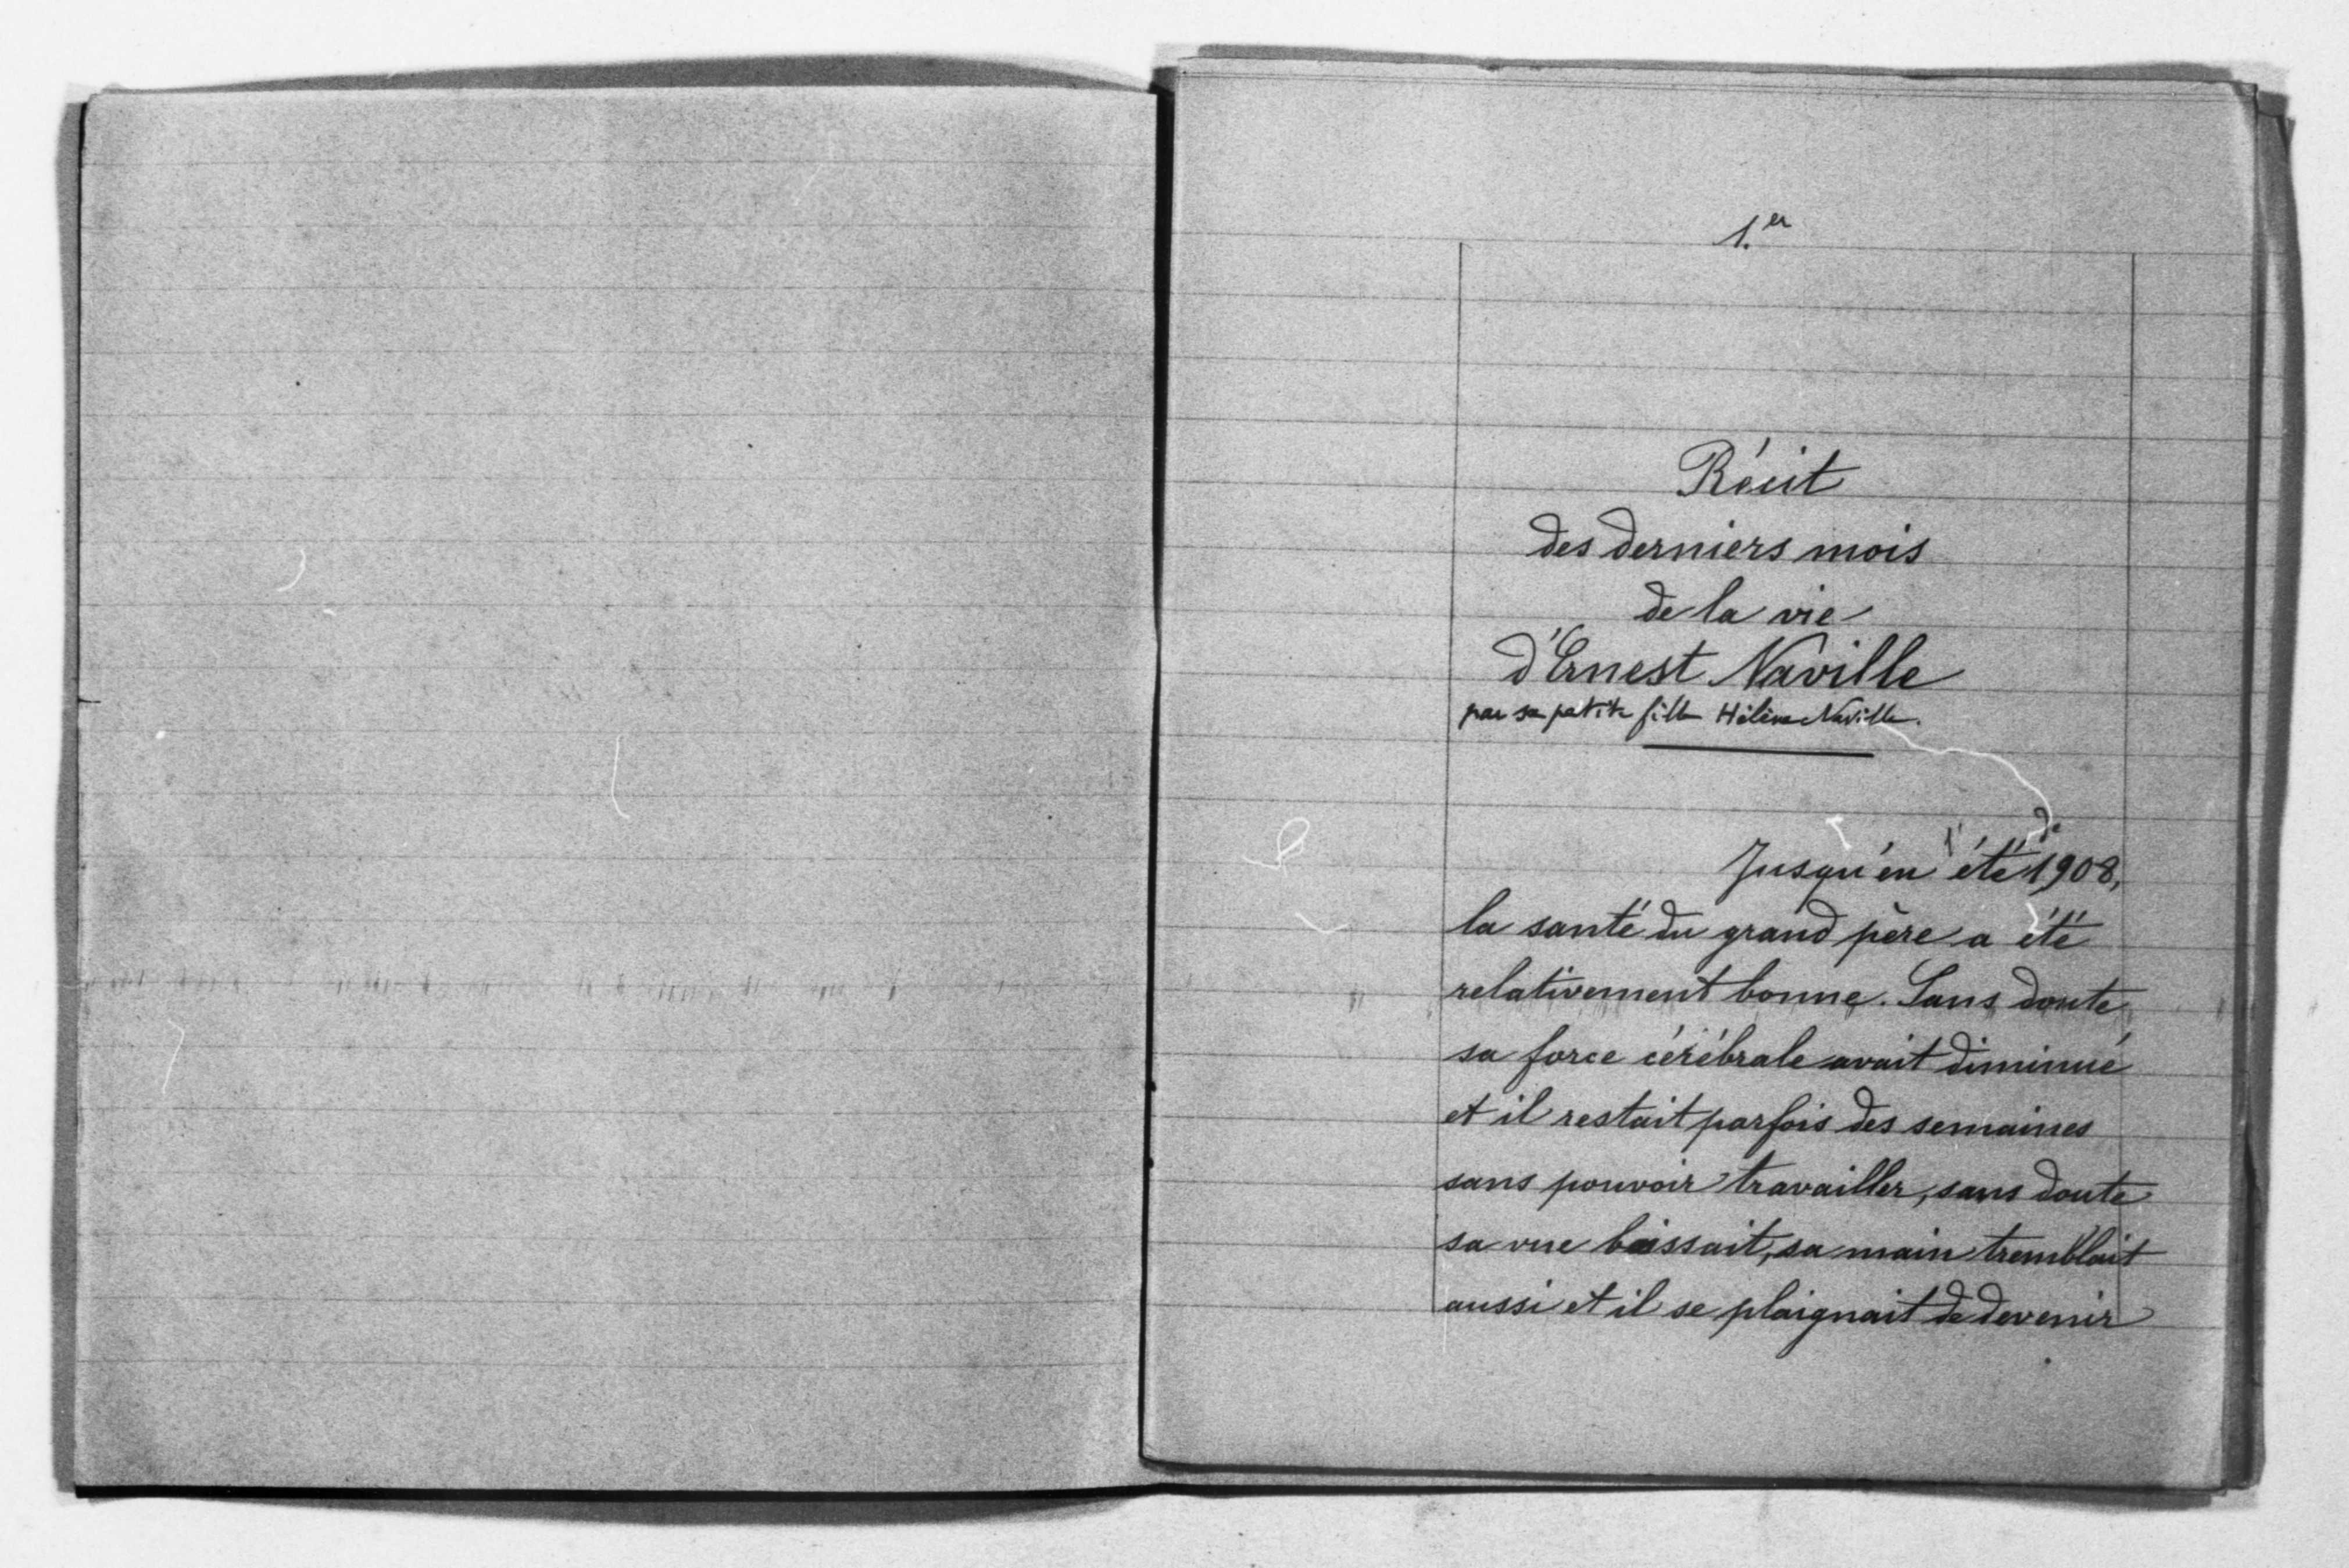 1.er
Récit
des derniers mois
de la vie
d'Ernest Naville
par sa petite fille Hélène Naville.
Jusqu'en l'été de 1908,
la santé du grand père a été
relativement bonne. Sans doute
sa force cérébrale avait diminué
et il restait parfois des semaines
sans pouvoir travailler, sans doute
sa vue baissait, sa main tremblait
aussi et il se plaignait de devenir